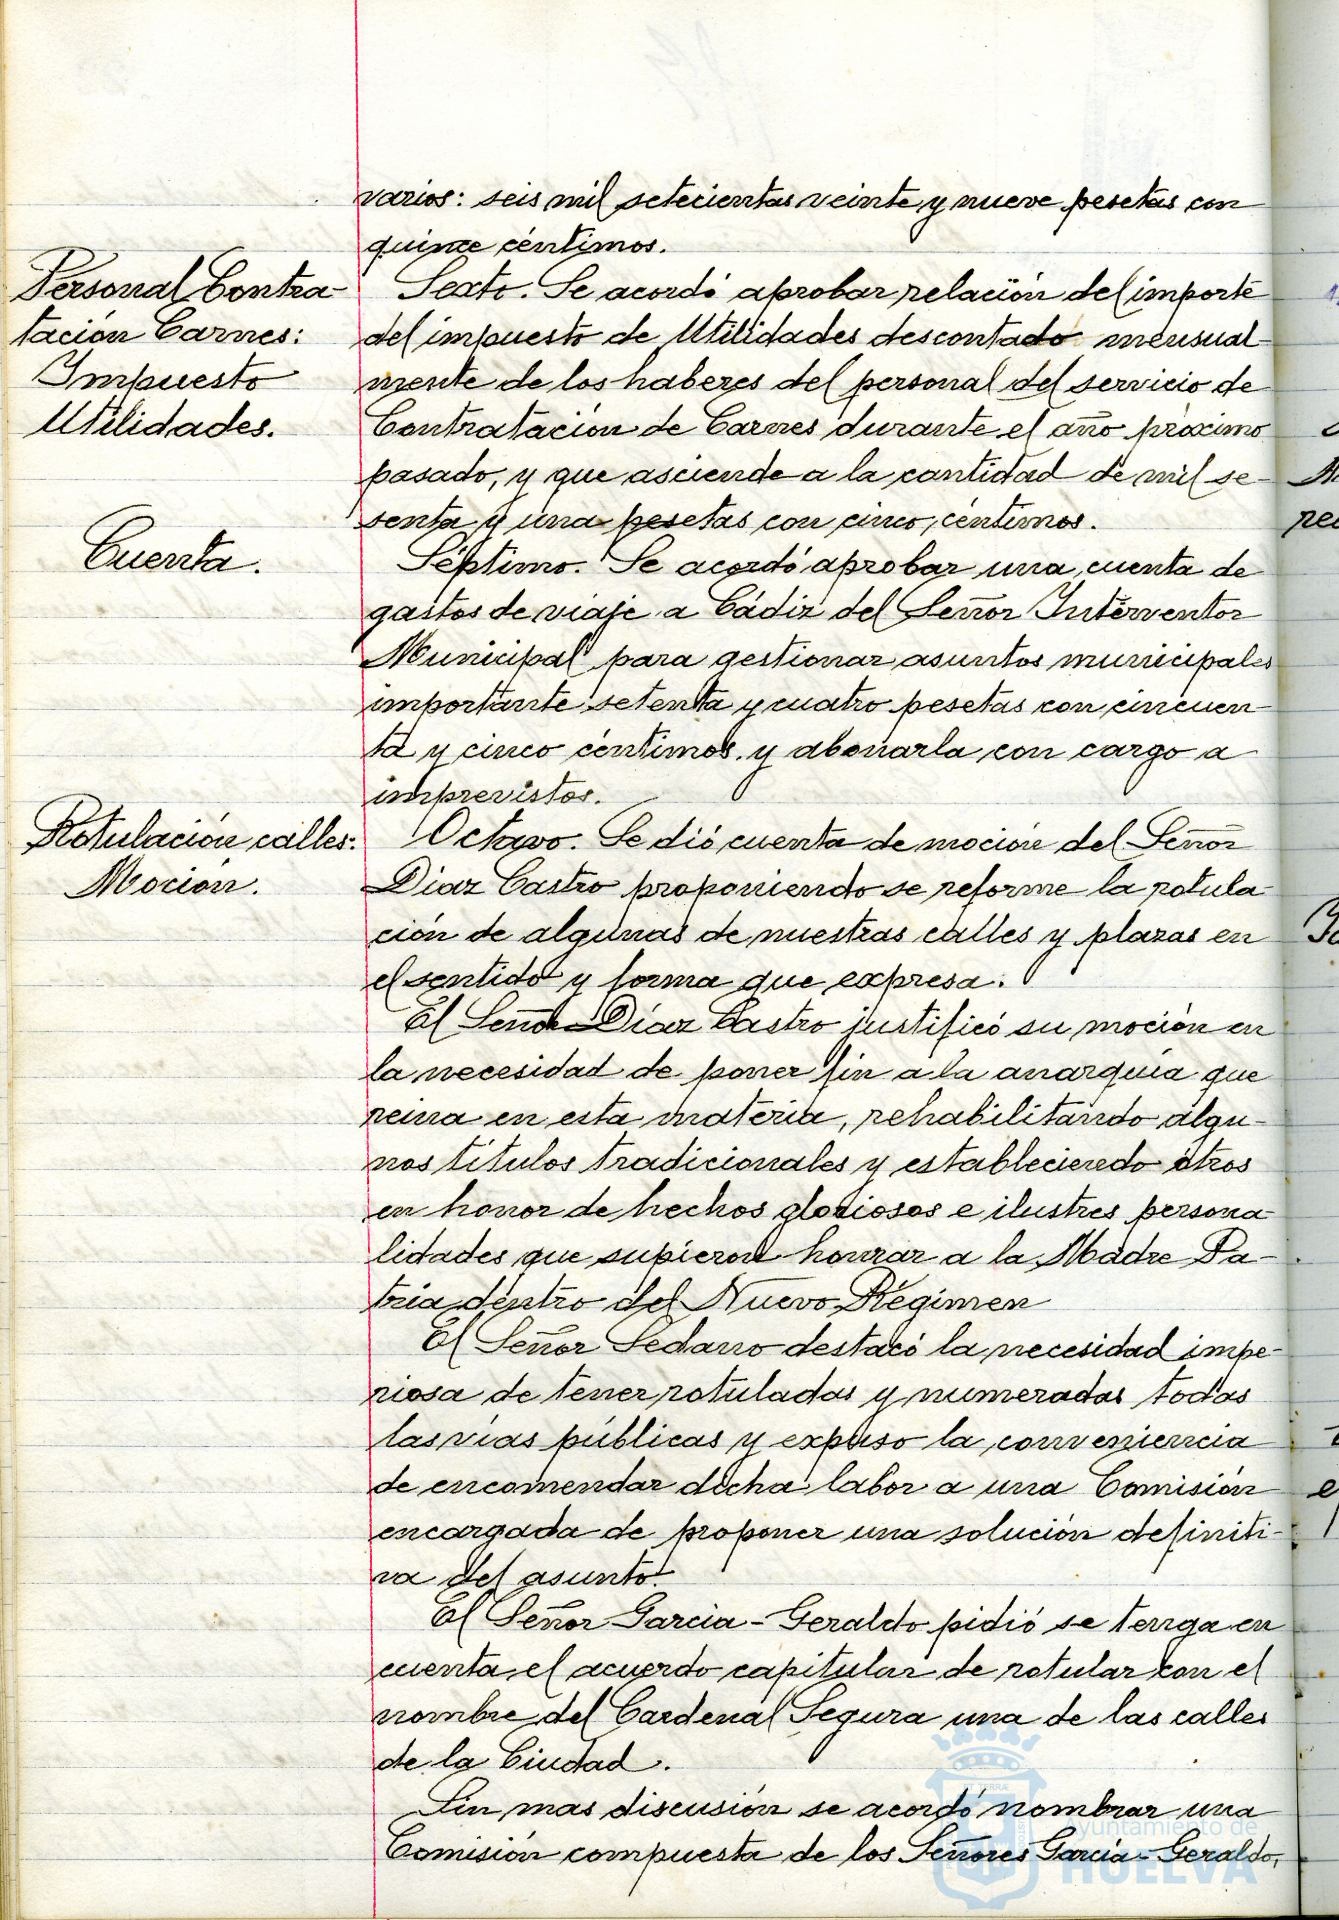 varios: seis mil setecientas veinte y nueve pesetas con
quince céntimos.
Personal Contra-
tación Carnes:
Impuesto
Utilidades.
Sexto. Se acordó aprobar relación del importe
del impuesto de Utilidades descontado mensual-
mente de los haberes del personal del servicio de
Contratación de Carnes durante el año próximo
pasado, y que asciende a la cantidad de mil se-
senta y una pesetas con cinco céntimos.
Cuenta.
Séptimo. Se acordó aprobar una cuenta de
gastos de viaje a Cádiz del Señor Interventor
Municipal para gestionar asuntos municipales
importante setenta y cuatro pesetas con cincuen-
ta y cinco céntimos y abonarla con cargo a
imprevistos.
Rotulación calles:
Moción.
Octavo. Se dió cuenta de moción del Señor
Diaz Castro proponiendo se reforme la rotula-
ción de algunas de nuestras calles y plazas en
el sentido y forma que expresa.
El Señor Díaz Castro justificó su moción en
la necesidad de poner fin a la anarquía que
reina en esta materia, rehabilitando algu-
nos títulos tradicionales y estableciendo otros
en honor de hechos gloriosos e ilustres persona-
lidades que supieron honrar a la Madre Pa-
tria dentro del Nuevo Régimen
El Señor Sedano destacó la necesidad impe-
riosa de tener rotuladas y numeradas todas
las vías públicas y expuso la conveniencia
de encomendar dicha labor a una Comisión
encargada de proponer una solución definiti-
va del asunto.
El Señor Garcia-Geraldo pidió se tenga en
cuenta el acuerdo capitular de rotular con el
nombre del Cardenal Segura una de las calles
de la Ciudad.
Sin mas discusión se acordó nombrar una
Comisión compuesta de los Señores Garcia-Geraldo,
Ayuntamiento de
HUELVA